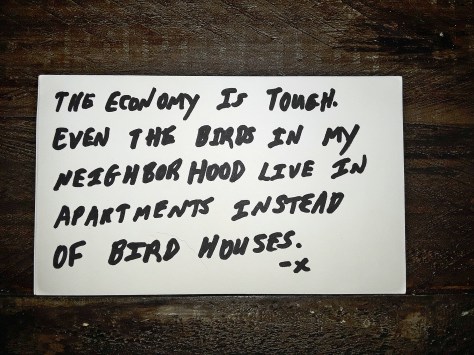 THE ECONOMY IS TOUGH.
EVEN THE BIRDS IN MY
NEIGHBORHOOD LIVE IN
APARTMENTS INSTEAD
OF BIRD HOUSES.
-x